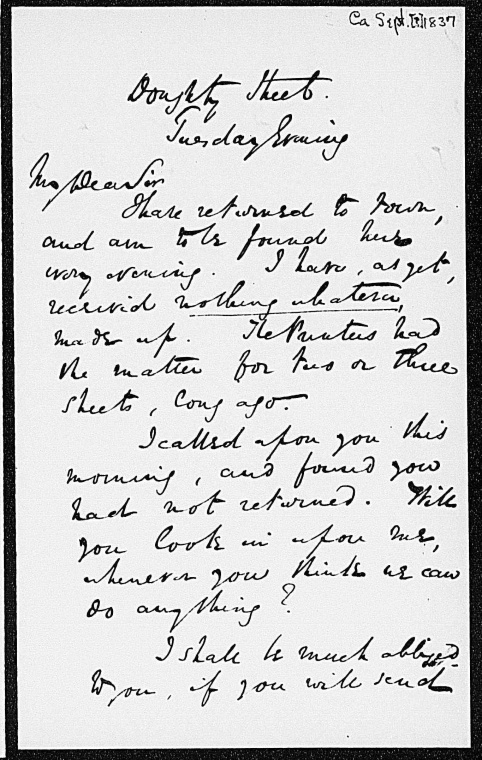 Ca Sept. [?] 1837
Doughty Street.
Tuesday Evening
My Dear Sir
I have returned to town,
and am to be found here
every evening. I have, as yet,
received nothing whatever,
made up. The Printers had
the matter for two or three
sheets, long ago.
I called upon you this
morning, and found you
had not returned. Will
you look in upon me,
whenever you think we can
do anything?
I shall be much obliged
to you, if you will send